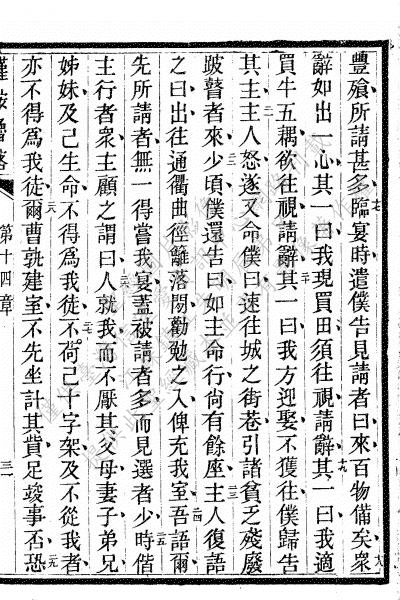 豐飱所請甚多臨宴時遣僕告見請者曰來百物備矣衆
辭如出一心其一曰我現買田須往視請辭其一曰我適
買牛五耦欲往視請辭其一曰我方迎娶不獲往僕歸告
其主主人怒遂又命僕曰速往城之街巷引諸貧乏殘廢
跛瞽者來少頃僕還告曰如主命行尚有餘座主人復語
之曰出往通衢曲徑籬落閒勸勉之入俾充我室吾語爾
先所請者無一得嘗我宴蓋被請者多而見選者少時偕
主行者衆主顧之謂曰人就我而不厭其父母妻子弟兄
姊妹及己生命不得爲我徒不荷己十字架及不從我者
亦不得爲我徒爾曹孰建室不先坐計其貲足竣事否恐
第十四章